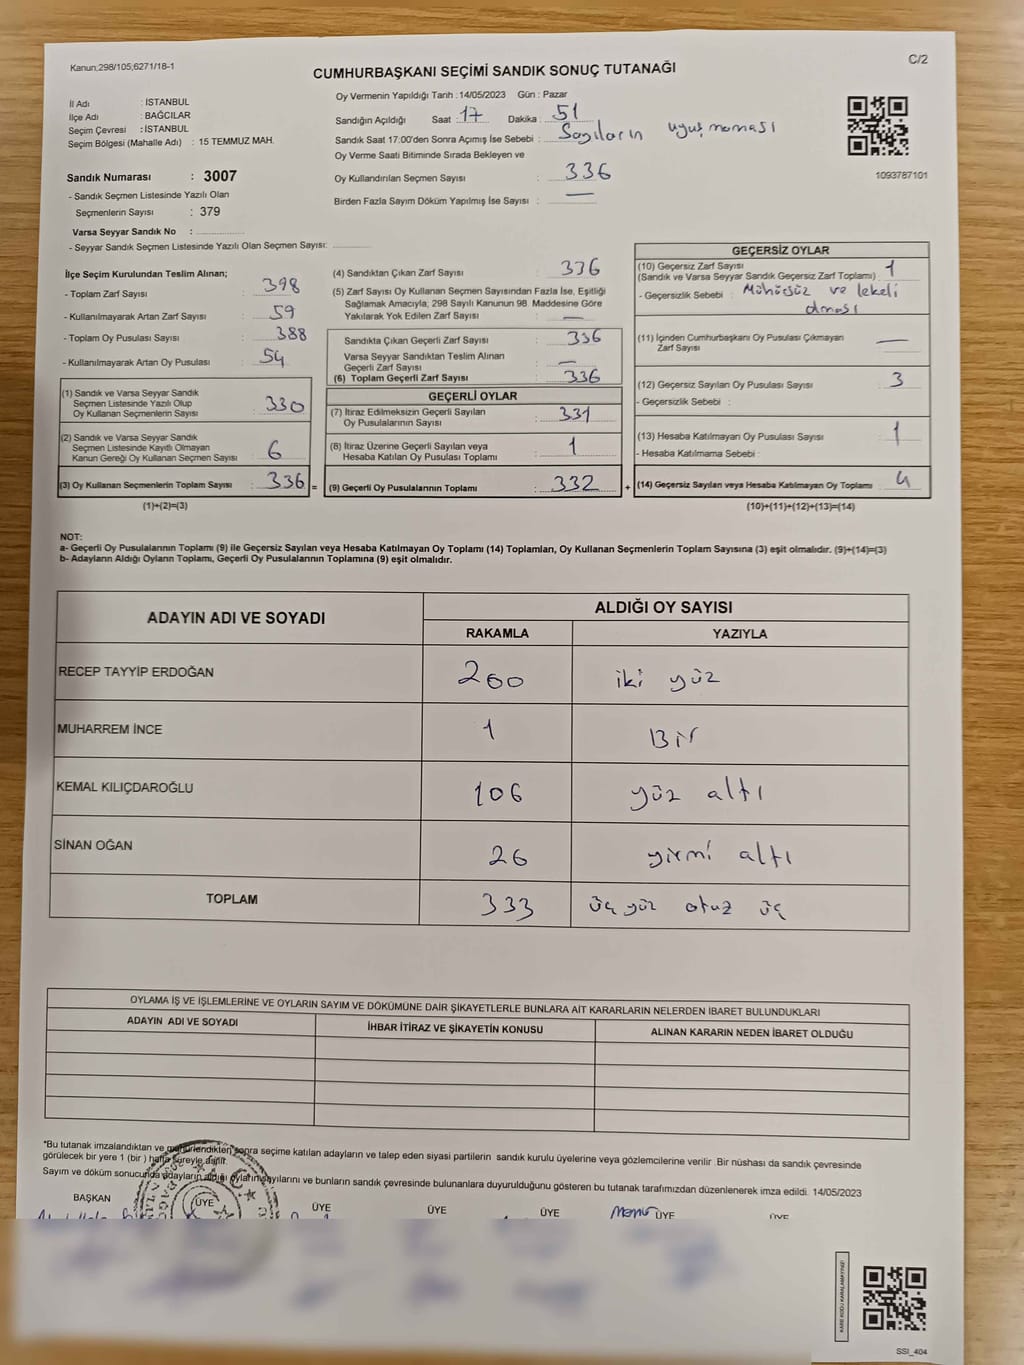 Kanun;298/105,6271/18-1
C/2
CUMHURBAŞKANI SEÇİMİ SANDIK SONUÇ TUTANAĞI
İl Adı : İSTANBUL
İlçe Adı : BAĞCILAR
Seçim Çevresi : İSTANBUL
Seçim Bölgesi (Mahalle Adı) : 15 TEMMUZ MAH.
Sandık Numarası : 3007
- Sandık Seçmen Listesinde Yazılı Olan
Seçmenlerin Sayısı : 379
Varsa Seyyar Sandık No :
- Seyyar Sandık Seçmen Listesinde Yazılı Olan Seçmen Sayısı:
Oy Vermenin Yapıldığı Tarih : 14/05/2023 Gün : Pazar
Sandığın Açıldığı Saat : 17 Dakika : 51
Sandık Saat 17:00'den Sonra Açımış İse Sebebi : Sayıların uyuşmaması
Oy Verme Saati Bitiminde Sırada Bekleyen ve
Oy Kullandırılan Seçmen Sayısı : 336
Birden Fazla Sayım Döküm Yapılmış İse Sayısı : —
1093787101
İlçe Seçim Kurulundan Teslim Alınan;
- Toplam Zarf Sayısı : 398
- Kullanılmayarak Artan Zarf Sayısı : 59
- Toplam Oy Pusulası Sayısı : 388
- Kullanılmayarak Artan Oy Pusulası : 54
(1) Sandık ve Varsa Seyyar Sandık
Seçmen Listesinde Yazılı Olup
Oy Kullanan Seçmenlerin Sayısı : 330
(2) Sandık ve Varsa Seyyar Sandık
Seçmen Listesinde Kayıtlı Olmayan
Kanun Gereği Oy Kullanan Seçmen Sayısı : 6
(3) Oy Kullanan Seçmenlerin Toplam Sayısı : 336 =
(1)+(2)=(3)
(4) Sandıktan Çıkan Zarf Sayısı : 336
(5) Zarf Sayısı Oy Kullanan Seçmen Sayısından Fazla İse, Eşitliği
Sağlamak Amacıyla; 298 Sayılı Kanunun 98. Maddesine Göre
Yakılarak Yok Edilen Zarf Sayısı : —
Sandıkta Çıkan Geçerli Zarf Sayısı : 336
Varsa Seyyar Sandıktan Teslim Alınan
Geçerli Zarf Sayısı : —
(6) Toplam Geçerli Zarf Sayısı : 336
GEÇERLİ OYLAR
(7) İtiraz Edilmeksizin Geçerli Sayılan
Oy Pusulalarının Sayısı : 331
(8) İtiraz Üzerine Geçerli Sayılan veya
Hesaba Katılan Oy Pusulası Toplamı : 1
(9) Geçerli Oy Pusulalarının Toplamı : 332 +
GEÇERSİZ OYLAR
(10) Geçersiz Zarf Sayısı : 1
(Sandık ve Varsa Seyyar Sandık Geçersiz Zarf Toplamı)
- Geçersizlik Sebebi : Mühürsüz ve lekeli
olması
(11) İçinden Cumhurbaşkanı Oy Pusulası Çıkmayan
Zarf Sayısı : —
(12) Geçersiz Sayılan Oy Pusulası Sayısı : 3
- Geçersizlik Sebebi :
(13) Hesaba Katılmayan Oy Pusulası Sayısı : 1
- Hesaba Katılmama Sebebi :
(14) Geçersiz Sayılan veya Hesaba Katılmayan Oy Toplamı : 4
(10)+(11)+(12)+(13)=(14)
NOT:
a- Geçerli Oy Pusulalarının Toplamı (9) ile Geçersiz Sayılan veya Hesaba Katılmayan Oy Toplamı (14) Toplamları, Oy Kullanan Seçmenlerin Toplam Sayısına (3) eşit olmalıdır. (9)+(14)=(3)
b- Adayların Aldığı Oyların Toplamı, Geçerli Oy Pusulalarının Toplamına (9) eşit olmalıdır.
ADAYIN ADI VE SOYADI ALDIĞI OY SAYISI
RAKAMLA YAZIYLA
RECEP TAYYİP ERDOĞAN 200 iki yüz
MUHARREM İNCE 1 Bir
KEMAL KILIÇDAROĞLU 106 yüz altı
SİNAN OĞAN 26 yirmi altı
TOPLAM 333 üç yüz otuz üç
OYLAMA İŞ VE İŞLEMLERİNE VE OYLARIN SAYIM VE DÖKÜMÜNE DAİR ŞİKAYETLERLE BUNLARA AİT KARARLARIN NELERDEN İBARET BULUNDUKLARI
ADAYIN ADI VE SOYADI İHBAR İTİRAZ VE ŞİKAYETİN KONUSU ALINAN KARARIN NEDEN İBARET OLDUĞU
*Bu tutanak imzalandıktan ve mühürlendikten sonra seçime katılan adayların ve talep eden siyasi partilerin sandık kurulu üyelerine veya gözlemcilerine verilir .Bir nüshası da sandık çevresinde
görülecek bir yere 1 (bir ) hafta süreyle asılır.
Sayım ve döküm sonucunda adayların aldığı oyların sayılarını ve bunların sandık çevresinde bulunanlara duyurulduğunu gösteren bu tutanak tarafımızdan düzenlenerek imza edildi. 14/05/2023
BAŞKAN ÜYE ÜYE ÜYE ÜYE ÜYE ÜYE
SSI_404